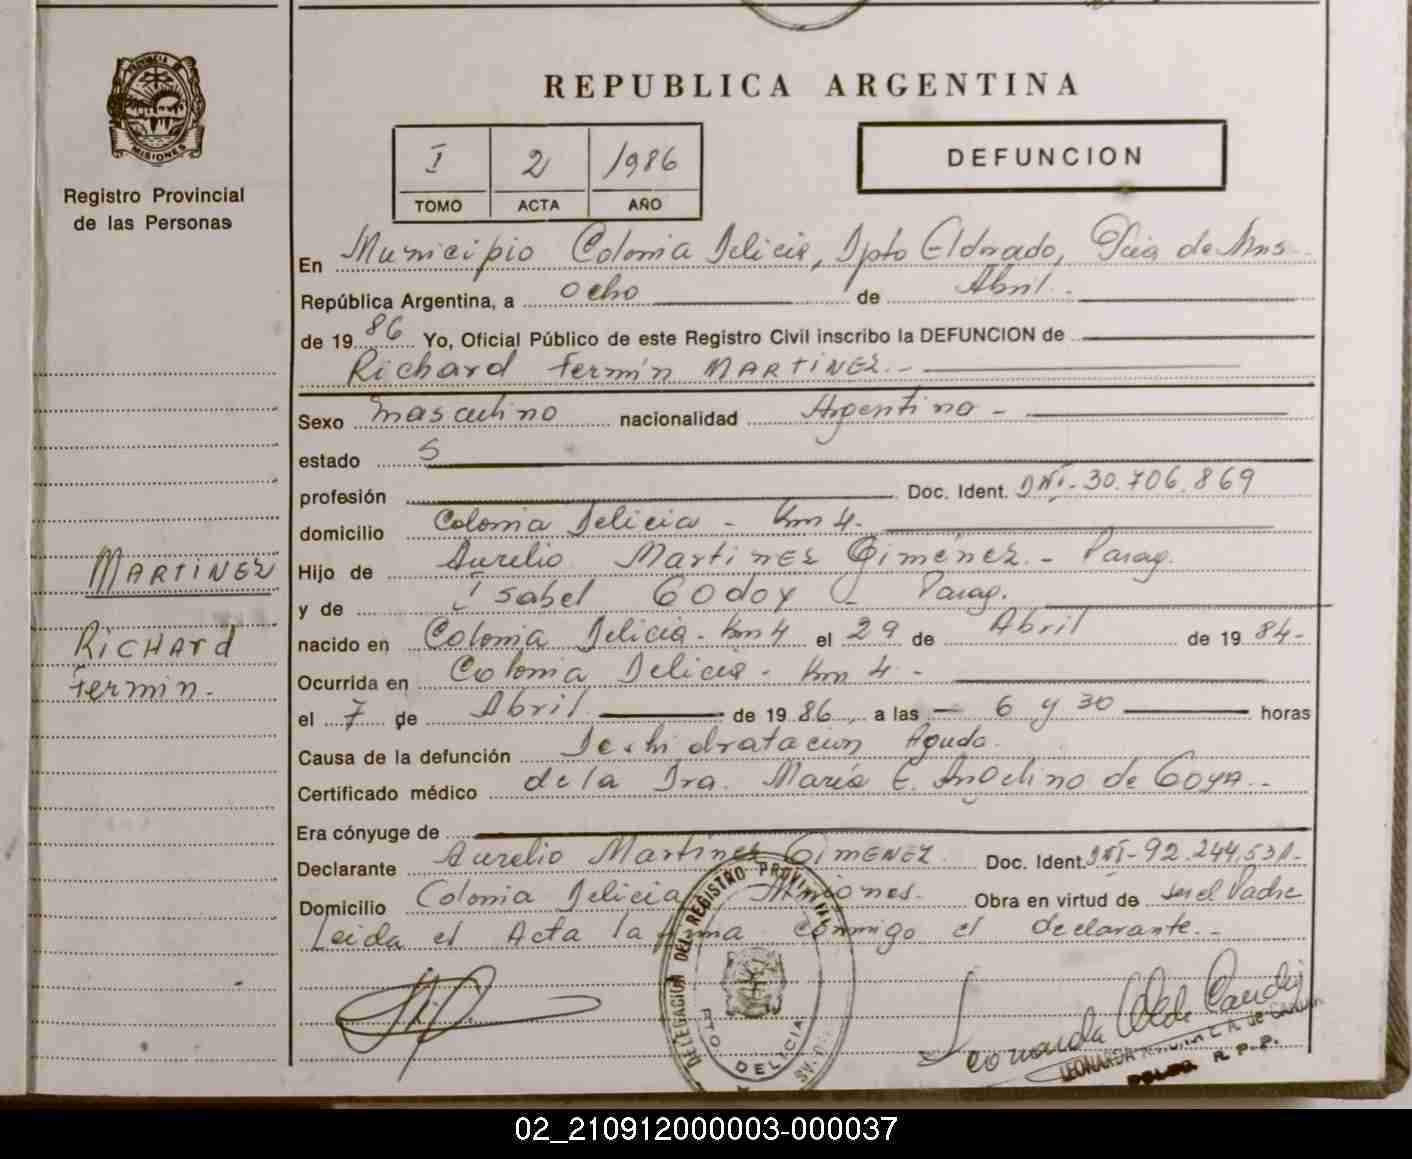 PROVINCIA DE
MISIONES
Registro Provincial
de las Personas
MARTINEZ
RICHARd
Fermin.-
REPUBLICA ARGENTINA
I 2 1986
TOMO ACTA AÑO
DEFUNCION
En Municipio Colonia Delicia, Dpto Eldorado, Pcia de Mns.-
República Argentina, a ocho de Abril.-
de 1986 Yo, Oficial Público de este Registro Civil inscribo la DEFUNCION de
Richard Fermín MARTÍNEZ.-
Sexo masculino nacionalidad Argentino -
estado S
profesión Doc. Ident. DNI-30.706.869
domicilio Colonia Delicia - Km 4.
Hijo de Aurelio Martinez Gimenez.- Parag.
y de Isabel Godoy - Parag.
nacido en Colonia Delicia - Km 4 el 29 de Abril de 1984-
Ocurrida en Colonia Delicia - Km 4 -
el 7 de Abril de 1986 a las - 6 y 30 horas
Causa de la defunción Deshidratación Aguda.
Certificado médico de la Dra. María E. de Goya.-
Era cónyuge de
Declarante Aurelio Martinez GIMENEZ. Doc. Ident. DNI-92.244.531-
Domicilio Colonia Delicia Misiones. Obra en virtud de ser el Padre
Leida el Acta la firma conmigo el declarante.-
DELEGACION DEL REGISTRO PROVINCIAL
DELICIA
Leonarda
LEONARDA
R. P. P.
02_210912000003-000037